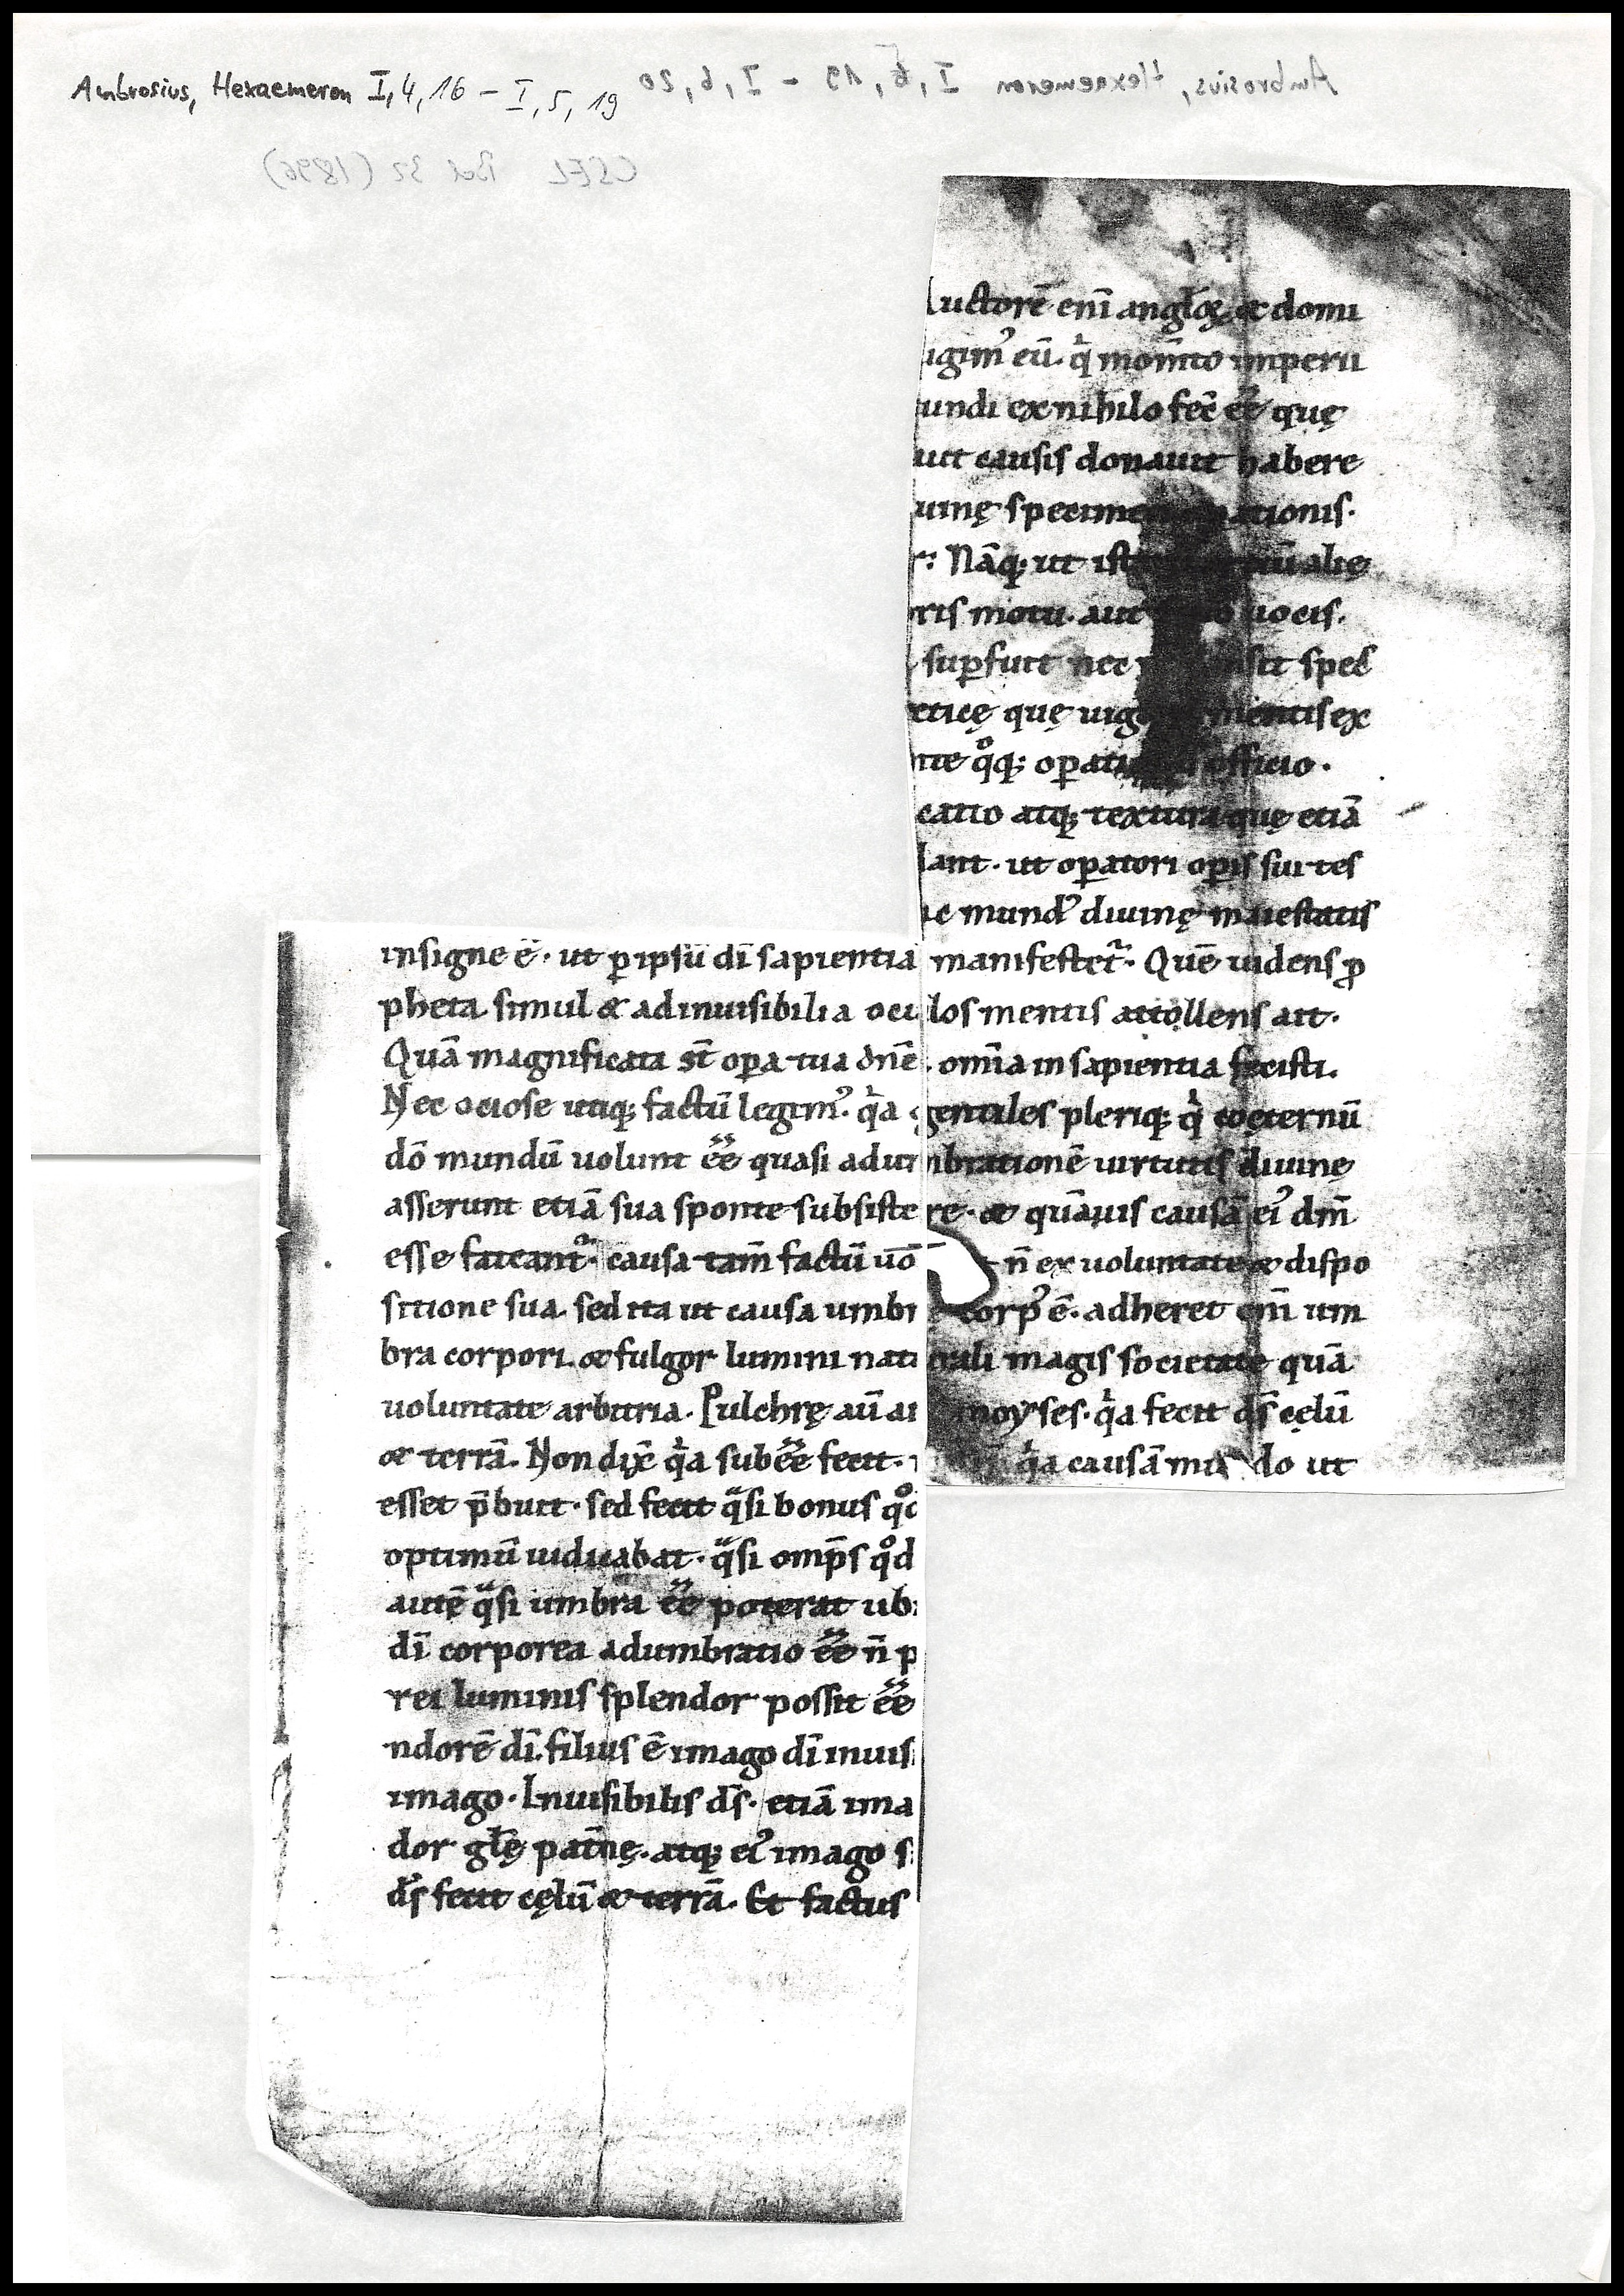 Ambrosius, Hexaemeron I, 4, 16 – I, 5, 19
Ambrosius, Hexaemeron I, 6, 19 – I, 6, 20
CSEL Bd 32 (1896)
uctorē enī angłoꝝ & domı
igimꝰ eū. q̇ mom̄to imperii
undi ex nihilo fec̄ ee̅ quę
uit causis donauit habere
uinę ationis.
Nāq; ut alię
ris motu. aut uocis.
suꝑfuit nec spec̄
cticę quę mentis ex
nte qͦq; oꝑati officio.
catio atq; textura quę etiā
lant. ut oꝑatori oꝑis sui tes
ic mundꝰ diuinę maiestatis
insigne ē. ut ꝑ ipsū dī sapientia manifestet᷑. Quē uidens ꝓ
pheta simul & ad inuisibilia oculos mentis attollens ait.
Quā magnificata st̄ oꝑa tua dn̄e. omīa in sapientia fecisti.
Nec ociose utiq; factū legimꝰ. q̇a gentiles pleriq; q̇ coęternū
dō mundū uolunt ee̅ quasi adumbrationē uirtutis diuinę
asserunt etiā sua sponte subsistere. & quāuis causā eiꝰ dm̄
esse fateant᷑. causa tam̄ factū uō n̄ ex uoluntate & dispo
sitione sua. sed ita ut causa umbrę corpꝰ ē. adheret enī um
bra corpori. & fulgor lumini naturali magis societate quā
uoluntate arbitria. Pulchrę aū ait moyses. q̇a fecit ds̄ cęlū
& terrā. Non dix̄ q̇a subee̅ fecit. n̄ q̇a causā mundo ut
esset p̄buit. sed fecit qͣsi bonus qͦd
optimū uidicabat. qͣsi omp̄s qͦd
autē qͣsi umbra ee̅ poterat ubi
dī corporea adumbratio ee̅ n̄ p
rei luminis splendor possit ee̅
ndorē dī. filius ē imago dī inuis
imago. Inuisibilis ds̄. etiā ima
dor głę pat̄nę. atq; eiꝰ imago s
ds̄ fecit cęlū & terrā. Et factus